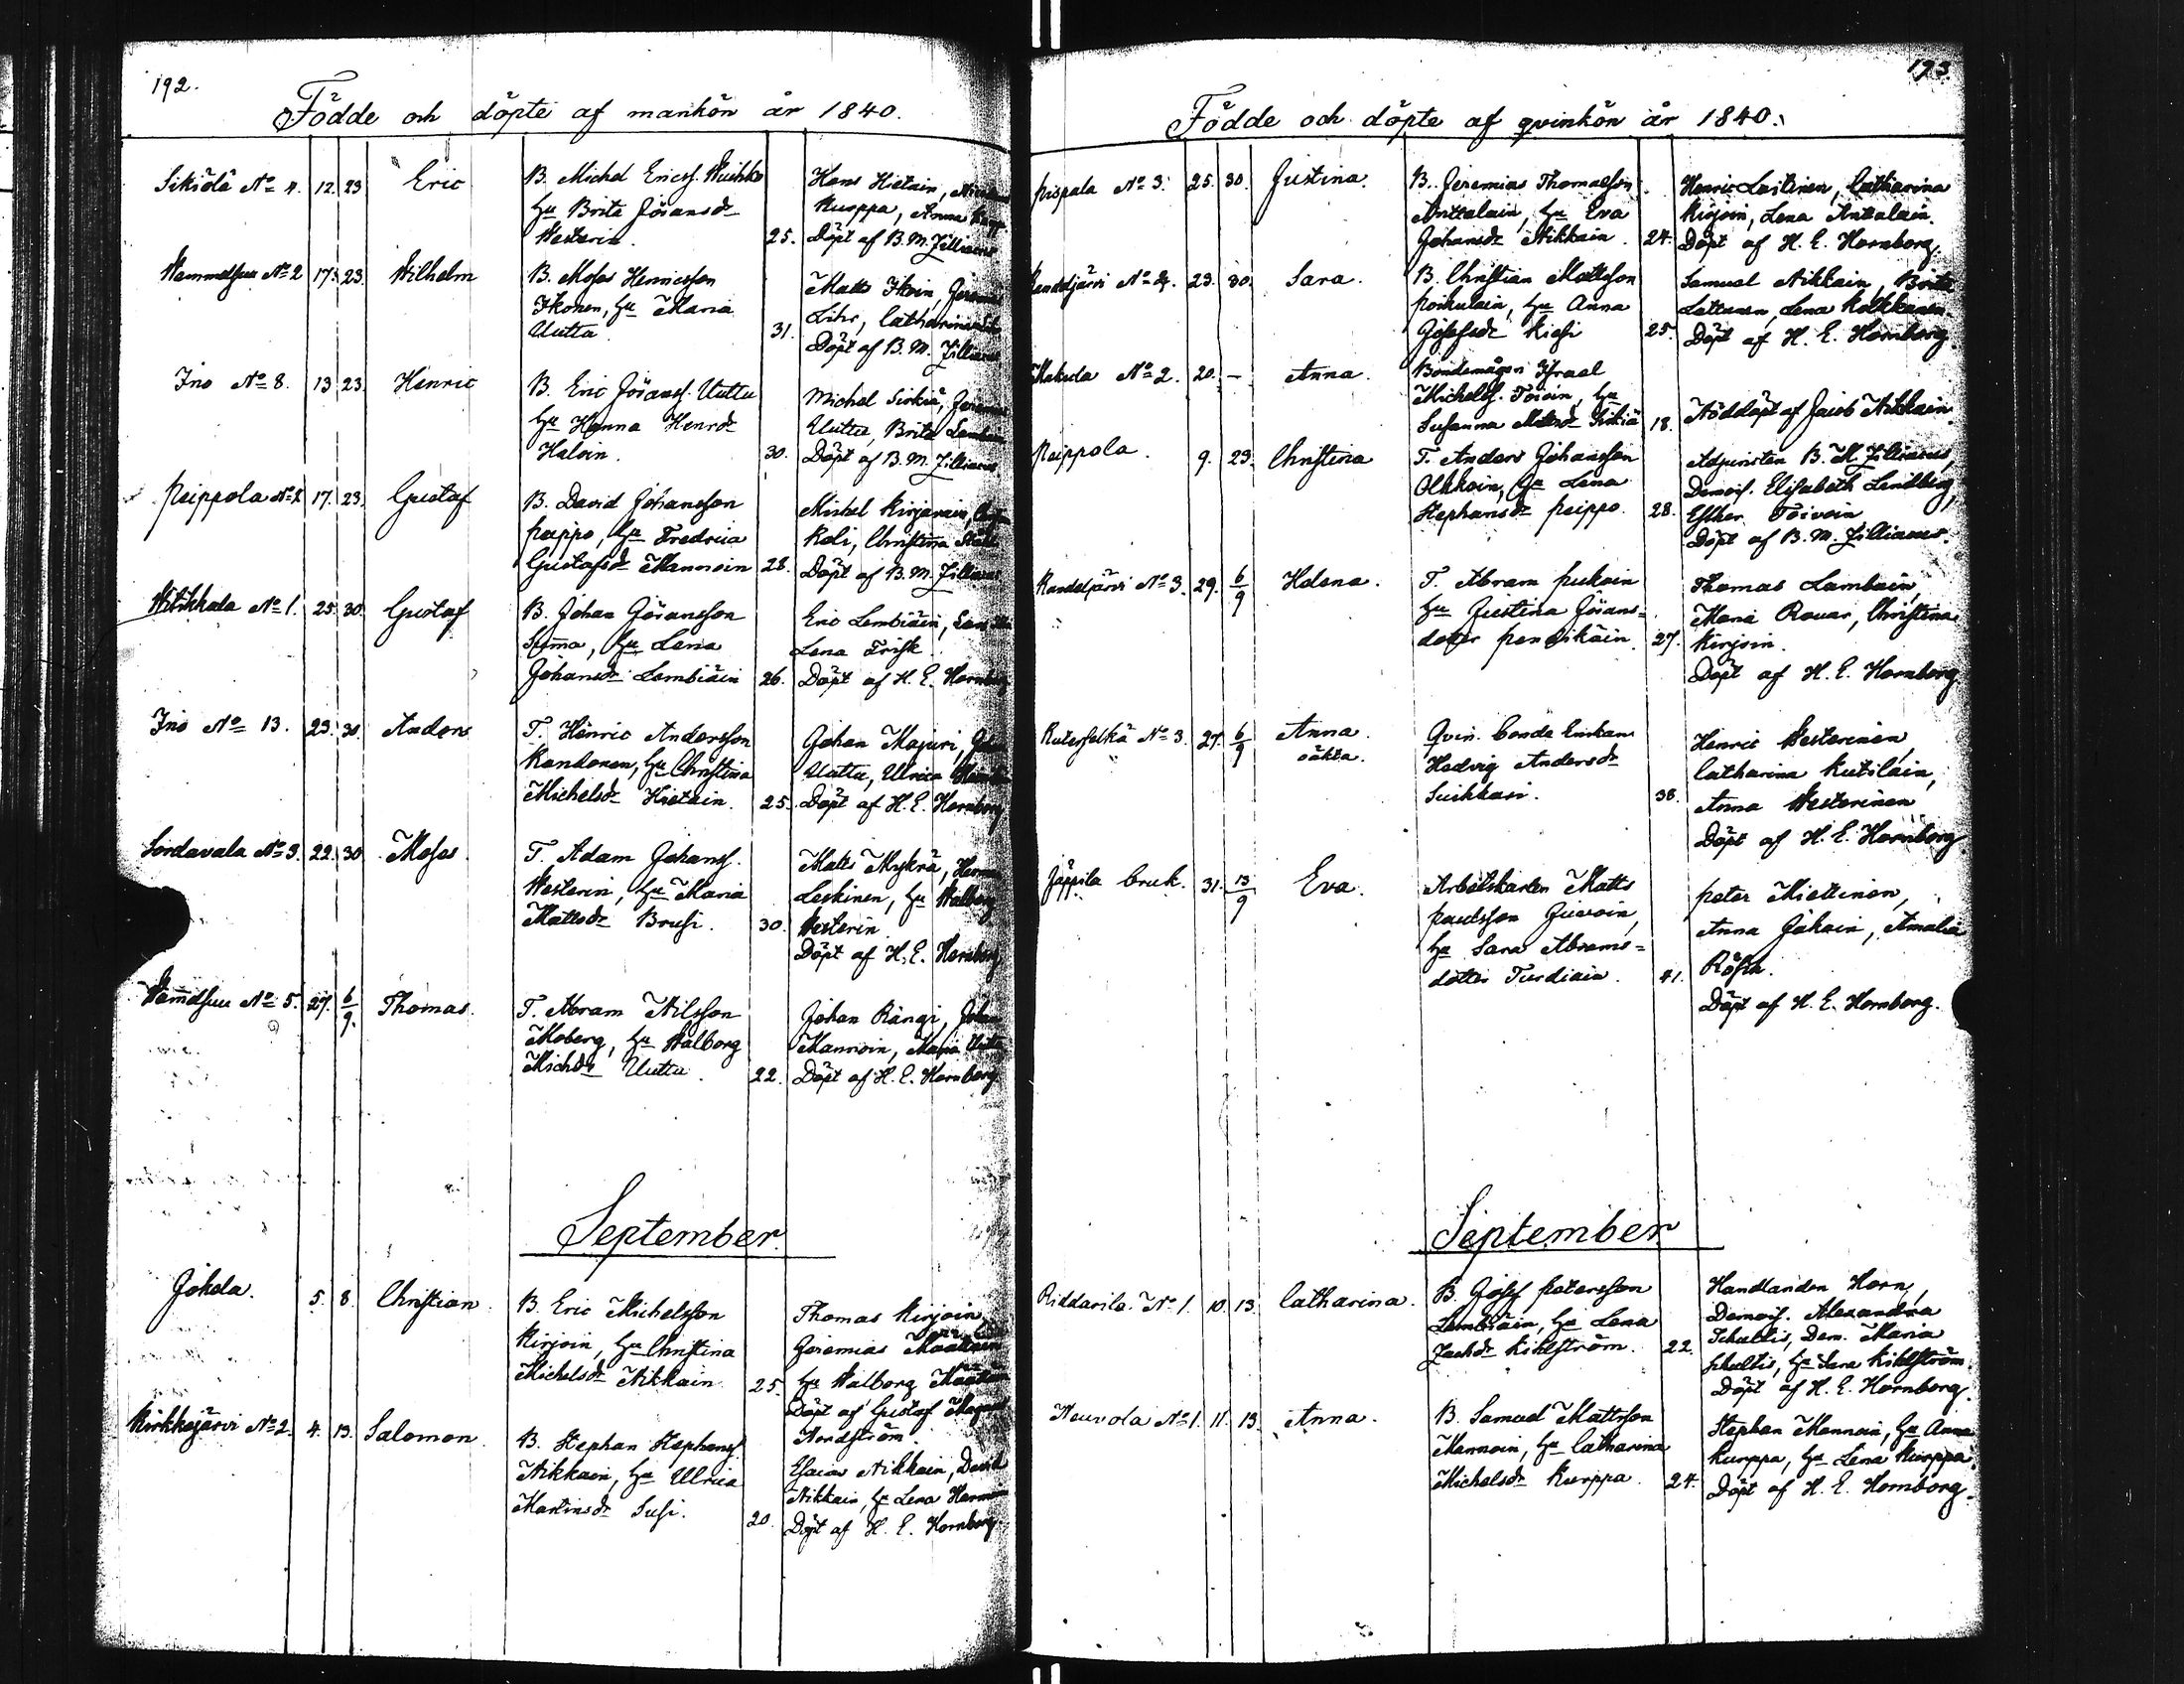 192.
Födde och döpte af mankön år 1840.
Sikiälä No 4. 12. 23 Eric
B. Michel Ericss.
hu Brita Göransdr
Westerin. 25.
Hans Hietain,
Kurppa, Anna
Döpt af B. M. Zilliacus
Wammelsuu No 2 17. 23. Wilhelm
B. Moses Henricsson
Ikonen, hu Maria
Uutta 31.
Matts Ikoin,
Lihr, Catharina
Döpt af B. M. Zilliacus
Ino No 8. 13 23. Henric
B. Eric Göranss. Uuttu
hu Hanna Henrdr
Haloin. 30.
Michel Sirkiä,
Uuttu, Brita
Döpt af B. M. Zilliacus
Peippola No 2 17. 23. Gustaf
B. David Johansson
Peippo, hu Fredrica
Gustafsdr Mannoin 28.
Michel Kirjavain,
Koli, Christina
Döpt af B. M. Zilliacus
Witikkala No 1. 25. 30. Gustaf
B. Johan Göransson
hu Lena
Johansdr Lembiäin 26.
Eric Lembiäin,
Lena Frisk
Döpt af H. E. Hornborg
Ino No 13. 23. 30. Anders
T. Henric Andersson
Kankonen, hu Christina
Michelsdr Hietain. 25.
Johan Majuri,
Uuttu, Ulrica
Döpt af H. E. Hornborg
Sordavala No 3. 22. 30 Moses.
T. Adam Johanss.
Westerin, hu Maria
Mattsdr Brusi. 30.
Matts Mykrä,
Leskinen, hu Walborg
Westerin
Döpt af H. E. Hornborg
Wamelsuu No 5. 27. 6/9. Thomas.
T. Abram Nilsson
Moberg, hu Walborg
Michdr Uuttu. 22.
Johan Rängi,
Mannoin, Maria
Döpt af H. E. Hornborg.
September.
Jokela. 5. 8. Christian.
B. Eric Michelsson
Kirjoin, hu Christina
Michelsdr Nikkain 25.
Thomas Kirjoin,
Jeremias
hu Walborg
Döpt af Gustaf
Nordström.
Kirkkojärvi No 2. 4. 13. Salomon.
B. Stephan Stephanss.
Nikkain, hu Ulrica
Martinsdr Susi. 20.
Esaias Nikkain, David
Nikkain, hu Lena
Döpt af H. E. Hornborg.
193
Födde och döpte af qvinkön år 1840.
Pispala No 3. 25. 30. Justina.
B. Jeremias Thomasson
Anttalain, hu Eva
Johansdr Nikkain. 24.
Henric Laitinen, Catharina
Kirjoin, Lena Antalain.
Döpt af H. E. Hornborg.
No 4. 23. 30. Sara.
B. Christian Mattsson
Poikulain, hu Anna
Josefsdr Kiesi 25.
Samuel Nikkain, Brita
Lattunen, Lena Kolkkanen
Döpt af H. E. Hornborg.
Makula No 2. 20. - Anna.
Bondemågen Israel
Michelss. Toivoin, hu
Susanna Mattsdr Sirkiä 18.
Nöddöpt af Jacob Nikkain.
Peippola. 9. 23. Christina
T. Anders Johansson
Olkkoin, hu Lena
Stephansdr Peippo. 28.
Adjuncten B. M. Zilliacus,
Demois. Elisabeth Lindberg,
Esther Toivoin
Döpt af B. M. Zilliacus.
Kandeljärvi No 3. 29. 6/9 Helena.
T. Abram Pukoin
hu Justina Görans=
dotter 27.
Thomas Lambain,
Maria Rouar, Christina
Kirjoin.
Döpt af H. E. Hornborg
Kuterselkä No 3. 27. 6/9 Anna.
oäkta.
Qvin. bonde Enkan
Hedvig Andersdr
Suikkari. 38.
Henric Westerinen,
Catharina Kutilain,
Anna Westerinen
Döpt af H. E. Hornborg
Jäppilä bruk. 31. 13/9 Eva.
Arbetskarlen Matts
Paulsson
hu Sara Abrams=
dotter Turdiain. 41.
Peter Miettinen,
Anna Jäkain, Amalia
Döpt af H. E. Hornborg.
September.
Riddarila. No 1. 10. 13. Catharina.
B. Josef Petersson
Lembiäin, hu Lena
Zachdr Kihlström. 22.
Handlanden Horn,
Demois. Alexandra
Schultis, Dem. Maria
Schultis, hu Sara Kihlström
Döpt af H. E. Hornborg.
Neuvola No 1. 11. 13. Anna.
B. Samuel Mattsson
Mannoin, hu Catharina
Michelsdr Kurppa. 24.
Stephan Mannoin, hu Anna
Kurppa, hu Lena Kurppa.
Döpt af H. E. Hornborg.